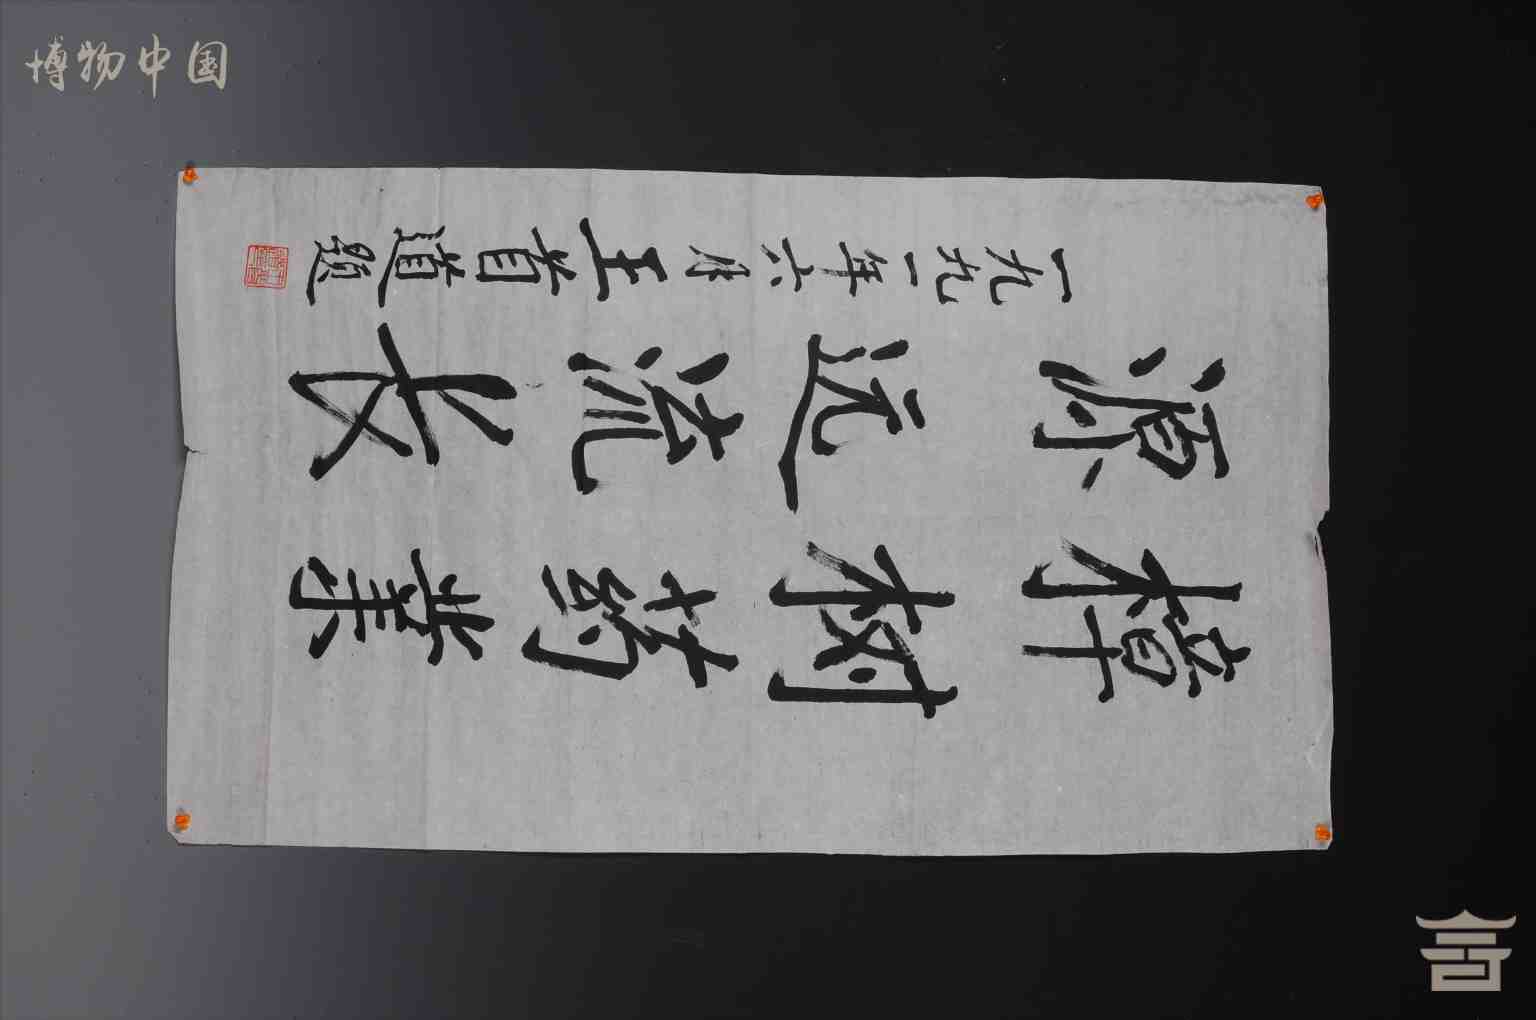 博物中国
樟树药業
源远流长
一九九一年六月王首道题